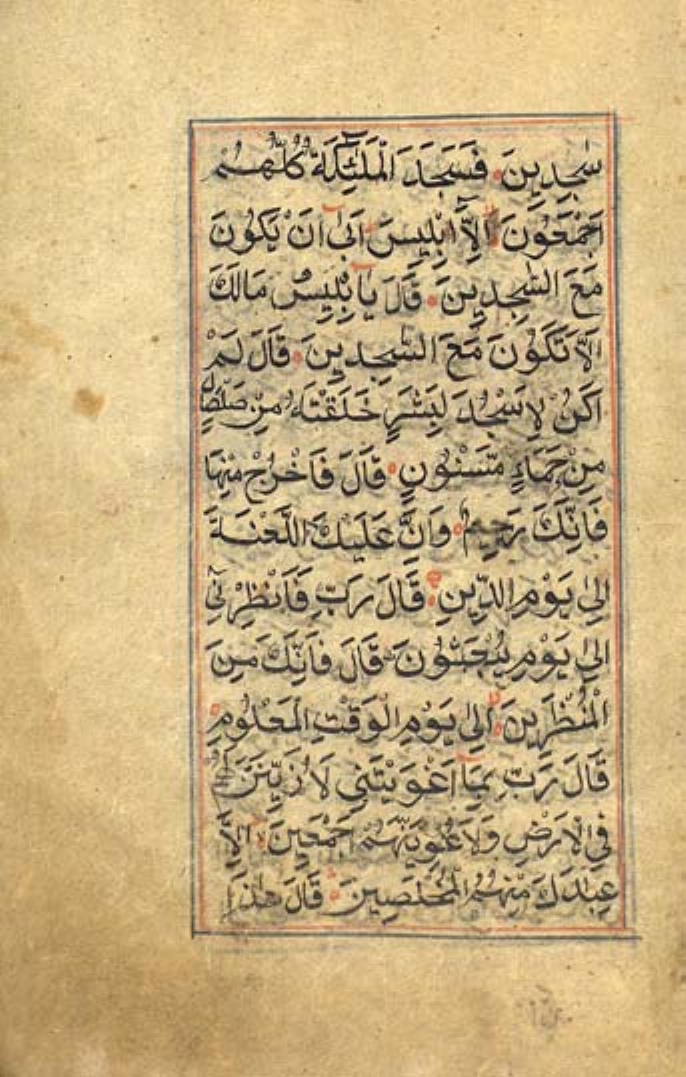 سٰجِدِينَ فَسَجَدَ الْمَلٰئِكَةُ كُلُّهُمْ
اَجْمَعُونَ اِلَّا اِبْلِيسَ اَبٰى اَنْ يَكُونَ
مَعَ السّٰجِدِينَ قَالَ يَا اِبْلِيسُ مَالَكَ
اَلَّا تَكُونَ مَعَ السّٰجِدِينَ قَالَ لَمْ
اَكُنْ لِاَسْجُدَ لِبَشَرٍ خَلَقْتَهُ مِنْ صَلْصَالٍ
مِنْ حَمَاءٍ مَسْنُونٍ قَالَ فَاخْرُجْ مِنْهَا
فَاِنَّكَ رَجِيمٌ وَاِنَّ عَلَيْكَ اللَّعْنَةَ
اِلٰى يَوْمِ الدِّينِ قَالَ رَبِّ فَاَنْظِرْنِى
اِلٰى يَوْمِ يُبْعَثُونَ قَالَ فَاِنَّكَ مِنَ
الْمُنْظَرِينَ اِلٰى يَوْمِ الْوَقْتِ الْمَعْلُومِ
قَالَ رَبِّ بِمَا اَغْوَيْتَنِى لَاُزَيِّنَنَّ لَهُمْ
فِى الْاَرْضِ وَلَاُغْوِيَنَّهُمْ اَجْمَعِينَ اِلَّا
عِبَادَكَ مِنْهُمُ الْمُخْلَصِينَ قَالَ هٰذَا